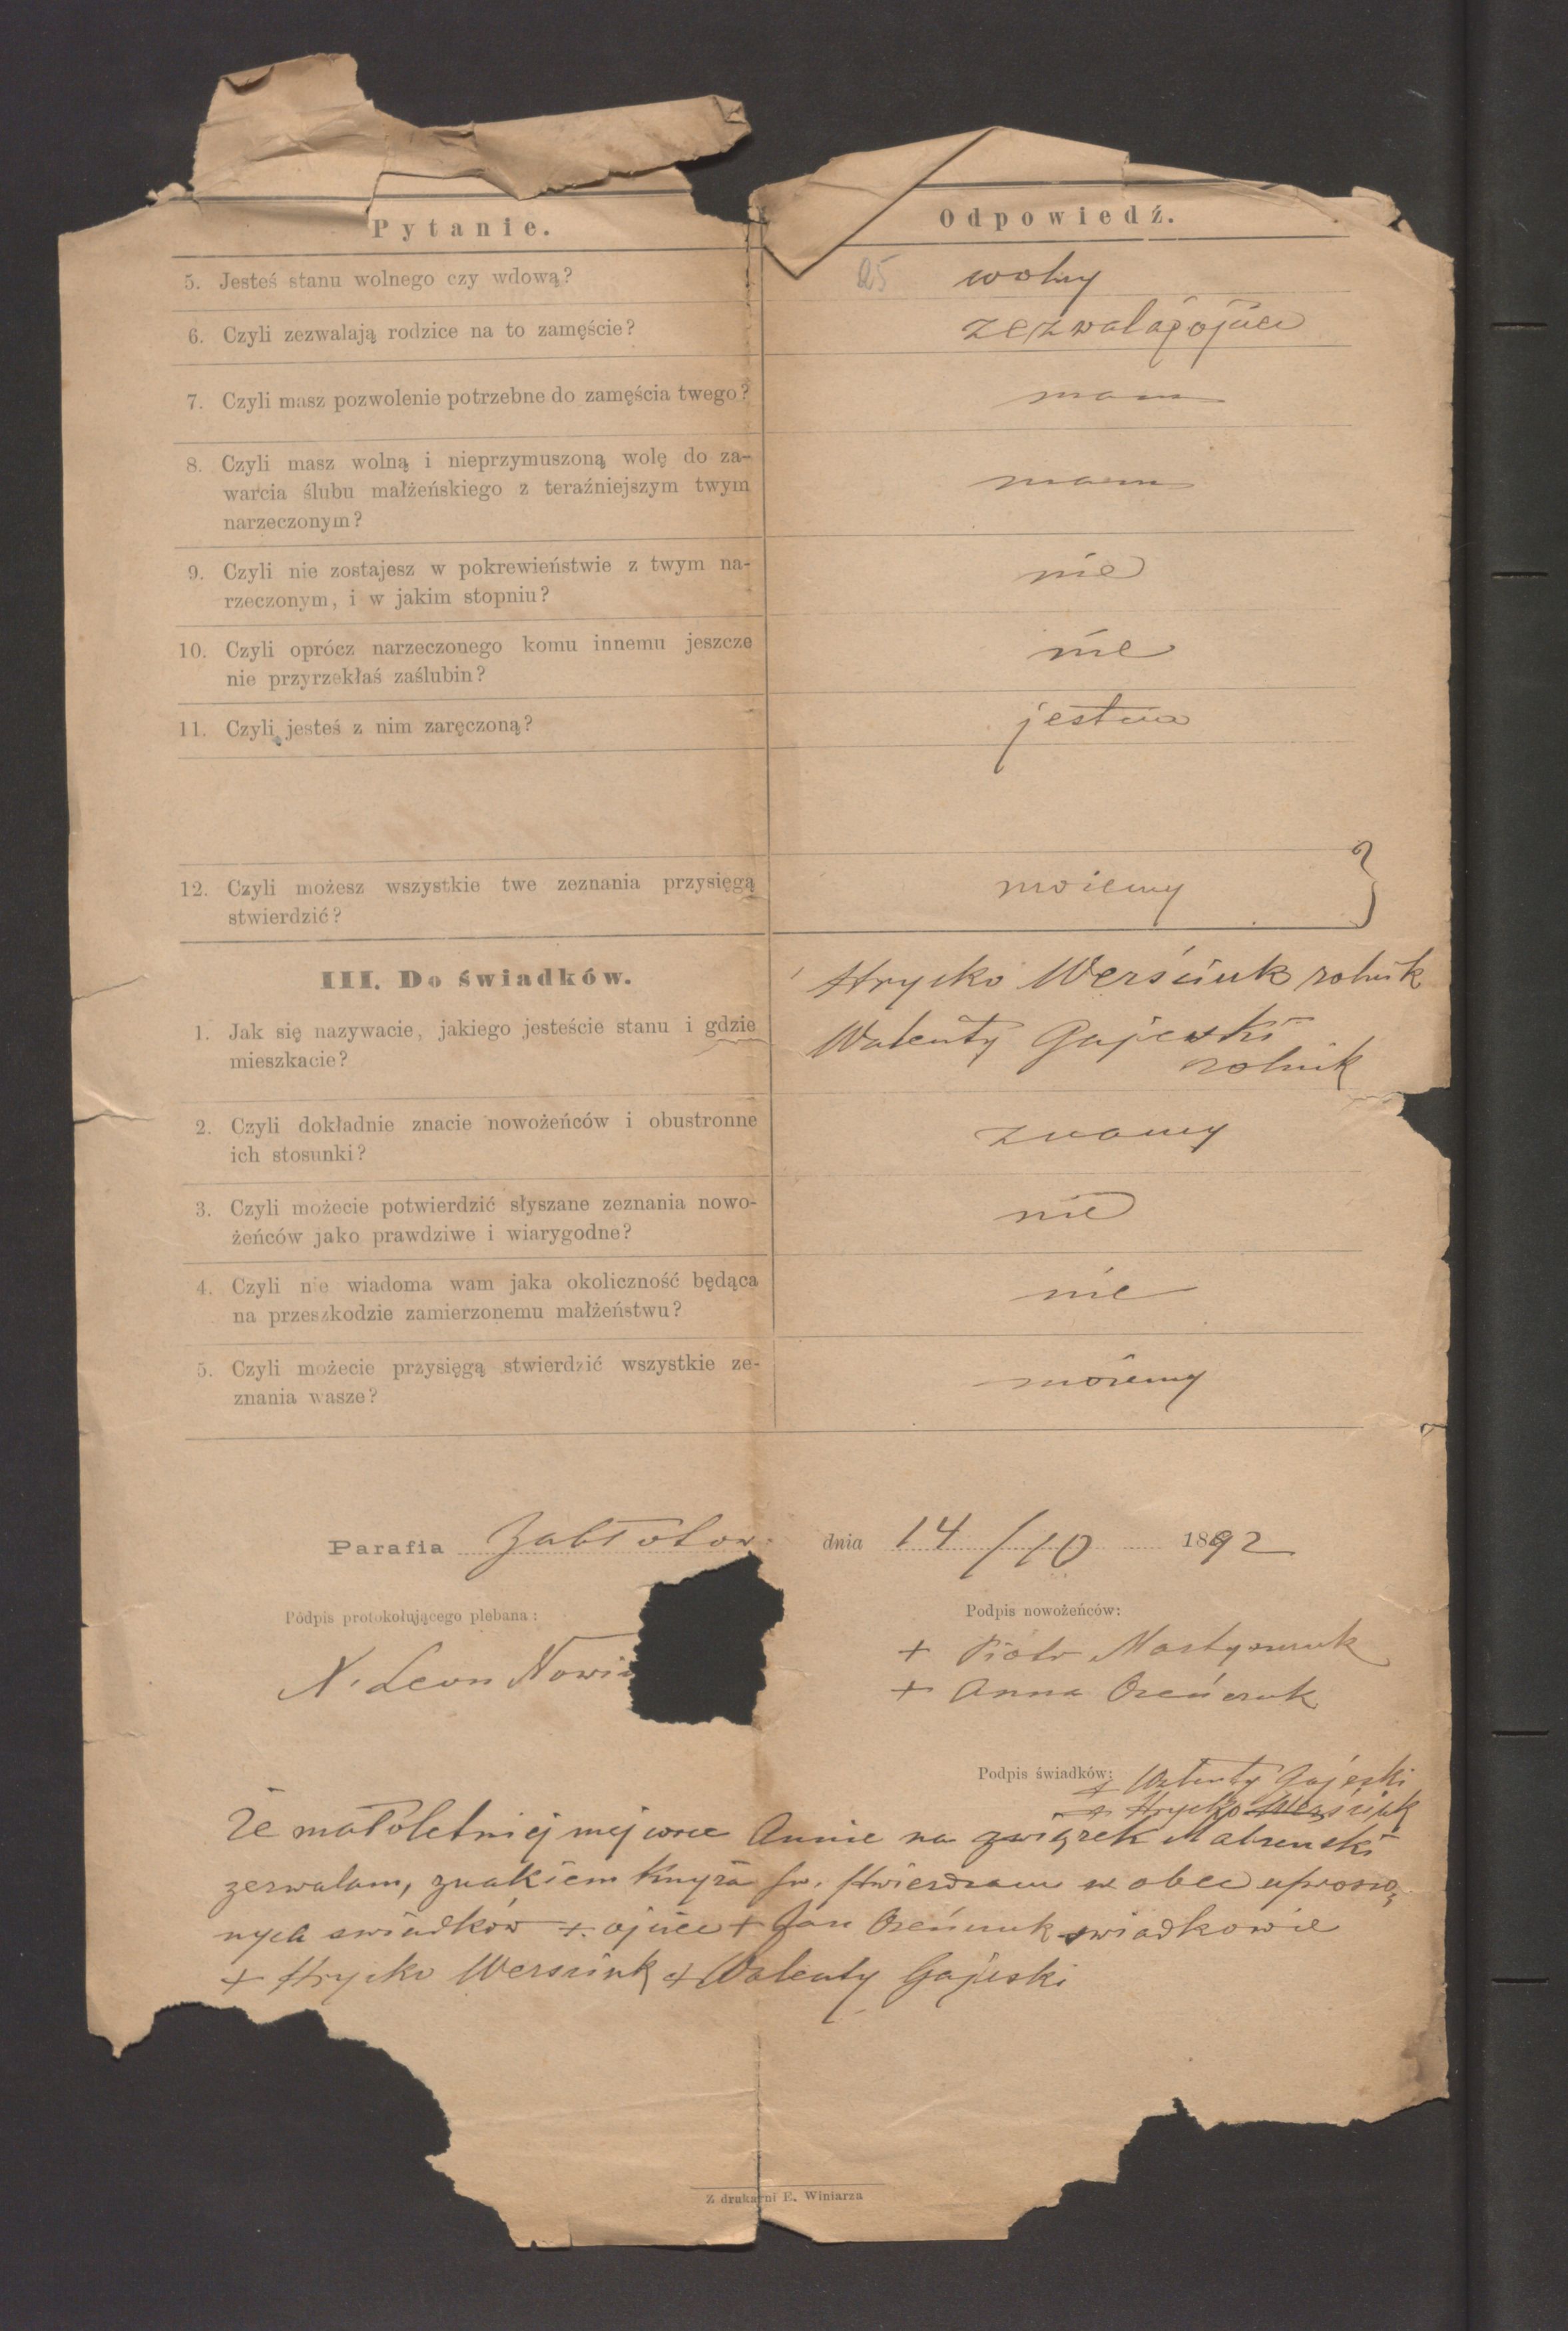 Pytanie.
Odpowiedź.
5. Jesteś stanu wolnego czy wdową?
25 wolny
6. Czyli zezwalają rodzice na to zamęście?
zezwala ojciec
7. Czyli masz pozwolenie potrzebne do zamęścia twego?
mam
8. Czyli masz wolną i nieprzymuszoną wolę do za-
warcia ślubu małżeńskiego z teraźniejszym twym
narzeczonym?
mam
9. Czyli nie zostajesz w pokrewieństwie z twym na-
rzeczonym, i w jakim stopniu?
nie
10. Czyli oprócz narzeczonego komu innemu jeszcze
nie przyrzekłaś zaślubin?
nie
11. Czyli jesteś z nim zaręczoną?
12. Czyli możesz wszystkie twe zeznania przysięgą
stwierdzić?
możemy
III. Do świadków.
1. Jak się nazywacie, jakiego jesteście stanu i gdzie
mieszkacie?
Hrycko Werściuk rolnik
Walenty Gajewski
rolnik
2. Czyli dokładnie znacie nowożeńców i obustronne
ich stosunki?
znamy
3. Czyli możecie potwierdzić słyszane zeznania nowo-
żeńców jako prawdziwe i wiarygodne?
nie
4. Czyli nie wiadoma wam jaka okoliczność będąca
na przeszkodzie zamierzonemu małżeństwu?
nie
5. Czyli możecie przysięgą stwierdzić wszystkie ze-
znania wasze?
możemy
Parafia Zabłotow dnia 14/10 1892
Podpis protokołującego plebana:
X. Leon Nowi
Podpis nowożeńców:
+ Piotr Martynczuk
+ Anna Oreńczuk
Podpis świadków:
+ Walenty Gajeski
+ Hrycko Werściuk
Że małoletniej mej Annie na związek Małżenski
zezwalam, znakiem Krzyża św. stwierdzam w obec uproszo-
nych swiadków +. ojciec + Jan Oreńczuk swiadkowie
+ Hrycko Wersciuk + Walenty Gajeski
Z drukarni E. Winiarza